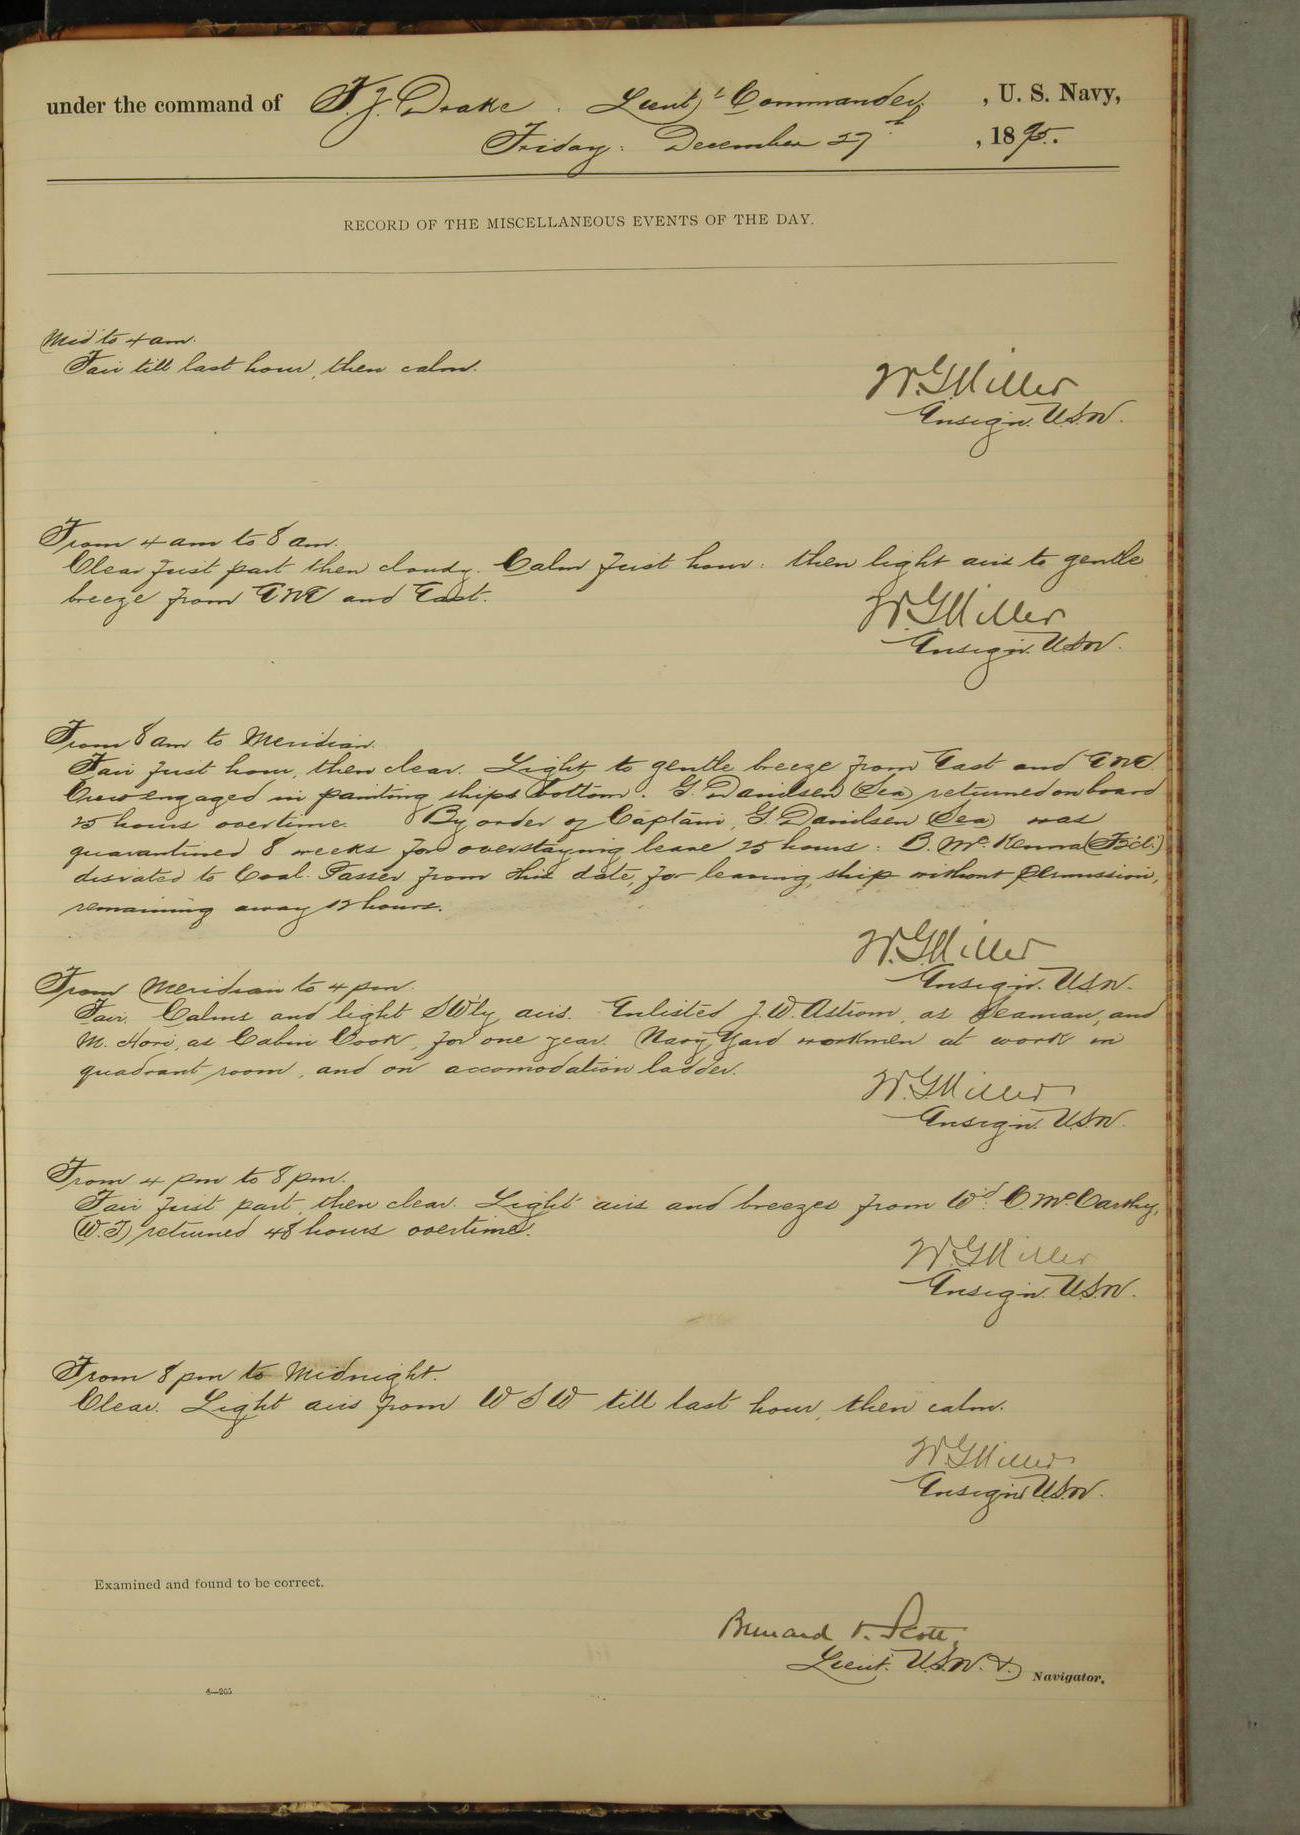 under the command of F. J. Drake. Lieut. Commander, U. S. Navy,
Friday. December 27th, 1895.
RECORD OF THE MISCELLANEOUS EVENTS OF THE DAY.
Mid to 4 am.
Fair till last hour, then calm.
W.G. Miller
Ensign. U.S.N.
From 4 am to 8 am.
Clear first part then cloudy. Calm first hour: then light airs to gentle
breeze from ENE and East.
W.G. Miller
Ensign. U.S.N.
From 8 am to Meridian.
Fair first hour, then clear. Light to gentle breeze from East and ENE.
Crew engaged in painting ships bottom. G. Danilsen (Sea) returned on board
25 hours overtime. By order of Captain, G. Danilsen (Sea) was
quarantined 8 weeks for overstaying leave 25 hours: B. McKenna
disrated to Coal Passer from this date, for leaving ship without permission,
remaining away 12 hours.
W.G. Miller
Ensign. U.S.N.
From Meridian to 4 pm.
Fair. Calms and light SW'ly airs. Enlisted J. W. Astrom, as Seaman, and
M. Hori, as Cabin Cook, for one year. Navy Yard workmen at work in
quadrant room, and on accomodation ladder.
W.G. Miller
Ensign. U.S.N.
From 4 pm to 8 pm.
Fair first part, then clear. Light airs and breezes from Wd. C. McCarthy,
(W.T) returned 48 hours overtime.
W.G. Miller
Ensign. U.S.N.
From 8 pm to Midnight.
Clear. Light airs from WSW till last hour, then calm.
W.G. Miller
Ensign U.S.N.
Examined and found to be correct.
Bernard O. Scott,
Lieut. U.S.N. & Navigator.
6—205